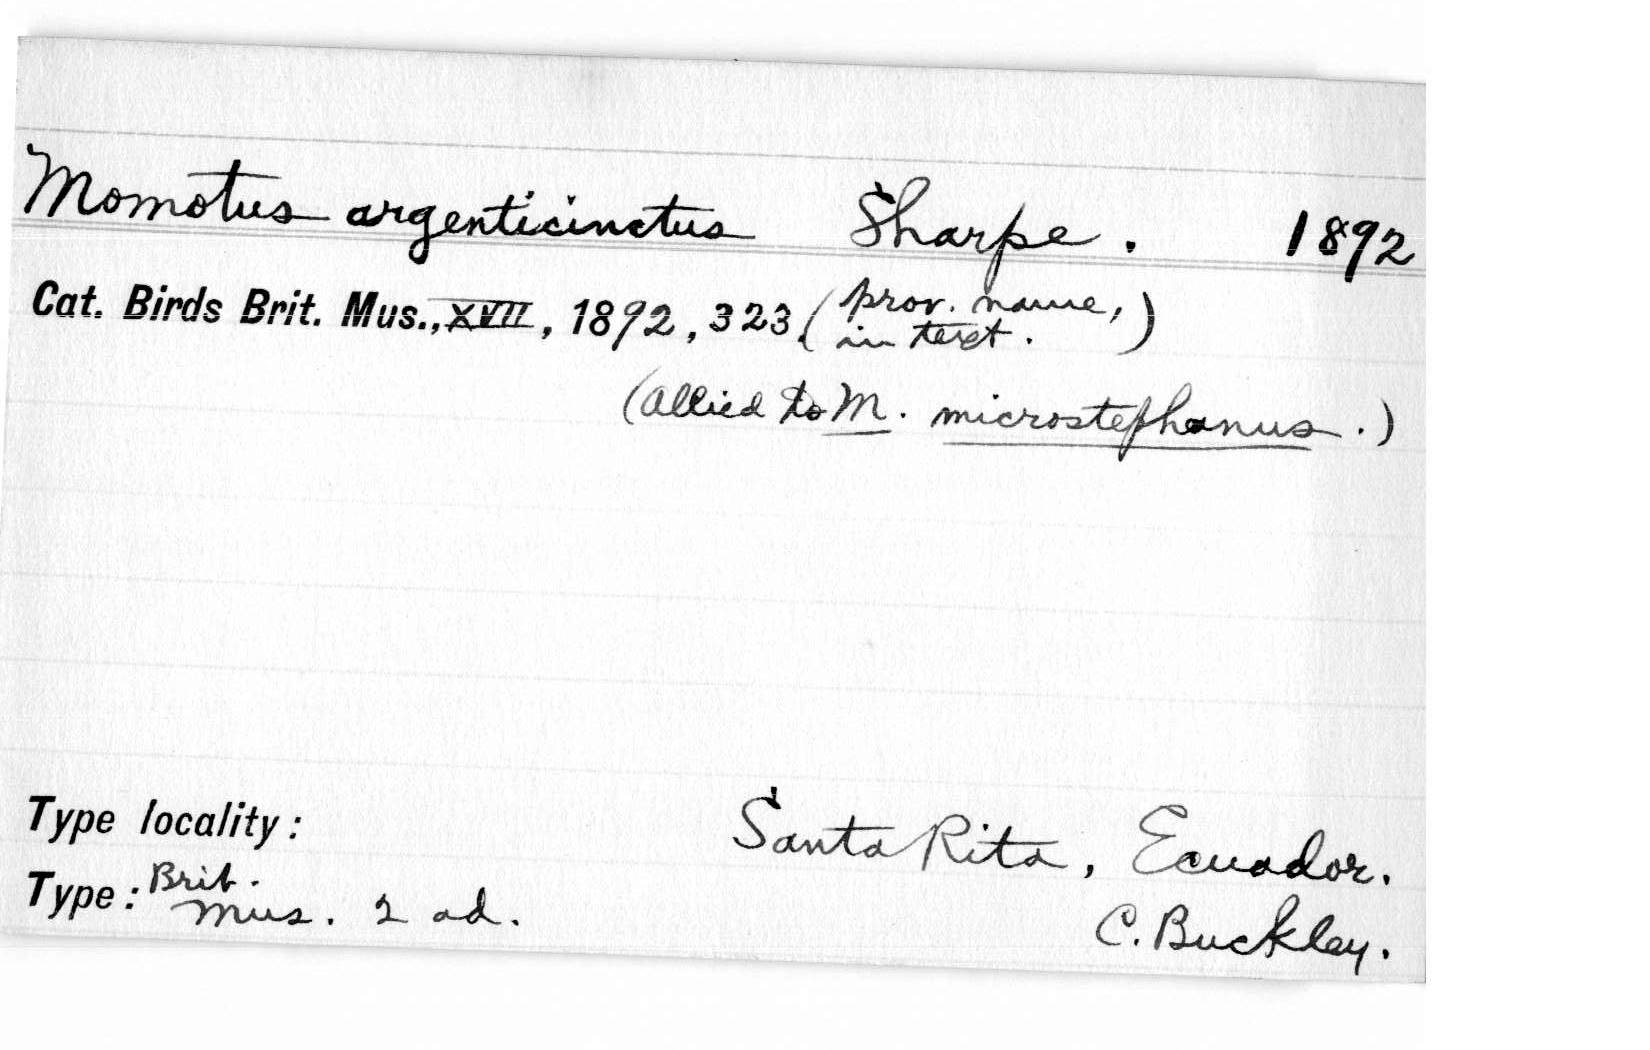 Momotus argenticinctus Sharpe. 1892
Cat. Birds Brit. Mus., XVII, 1892, 323. (prov. name,
in text.)
(Allied to M. microstephanus.)
Type locality: Santa Rita, Ecuador.
Type: Brit.
Mus. 2 ad. C. Buckley.